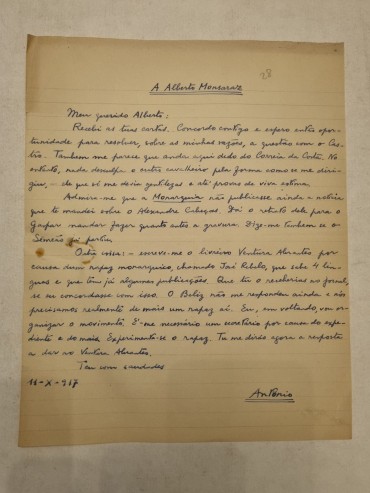 A Alberto Monsaraz
28
Meu querido Alberto:
Recebi as tuas cartas. Concordo contigo e espero outra opor-
tunidade para resolver, sobre as minhas razões, a questão com o Cas-
tro. Tambem me parece que anda aqui dedo do Correia da Costa. No
entanto, nada desculpa o outro cavalheiro pela forma como se me diri-
giu, – ele que só me devia gentilezas e até provas de viva estima.
Admira-me que a Monarquia não publicasse ainda a noticia
que te mandei sobre o Alexandre Cabeças. Foi o retrato dele para o
Gaspar mandar fazer quanto antes a gravura. Dize-me tambem se o
Simeão já partiu.
Outra coisa: – escreve-me o livreiro Ventura Abrantes por
causa dum rapaz monarquico, chamado José Rebelo, que sabe 4 lin-
guas e que tem já algumas publicações. Que tu o receberias no jornal,
se eu concordasse com isso. O Beliz não me respondeu ainda e nós
precisamos realmente de mais um rapaz aí. Eu, em voltando, vou or-
ganizar o movimento. É-me necessario um secretario por causa do expe-
diente e do mais. Experimente-se o rapaz. Tu me dirás agora a resposta
a dar ao Ventura Abrantes.
Teu com saudades
11-X-917
Antonio